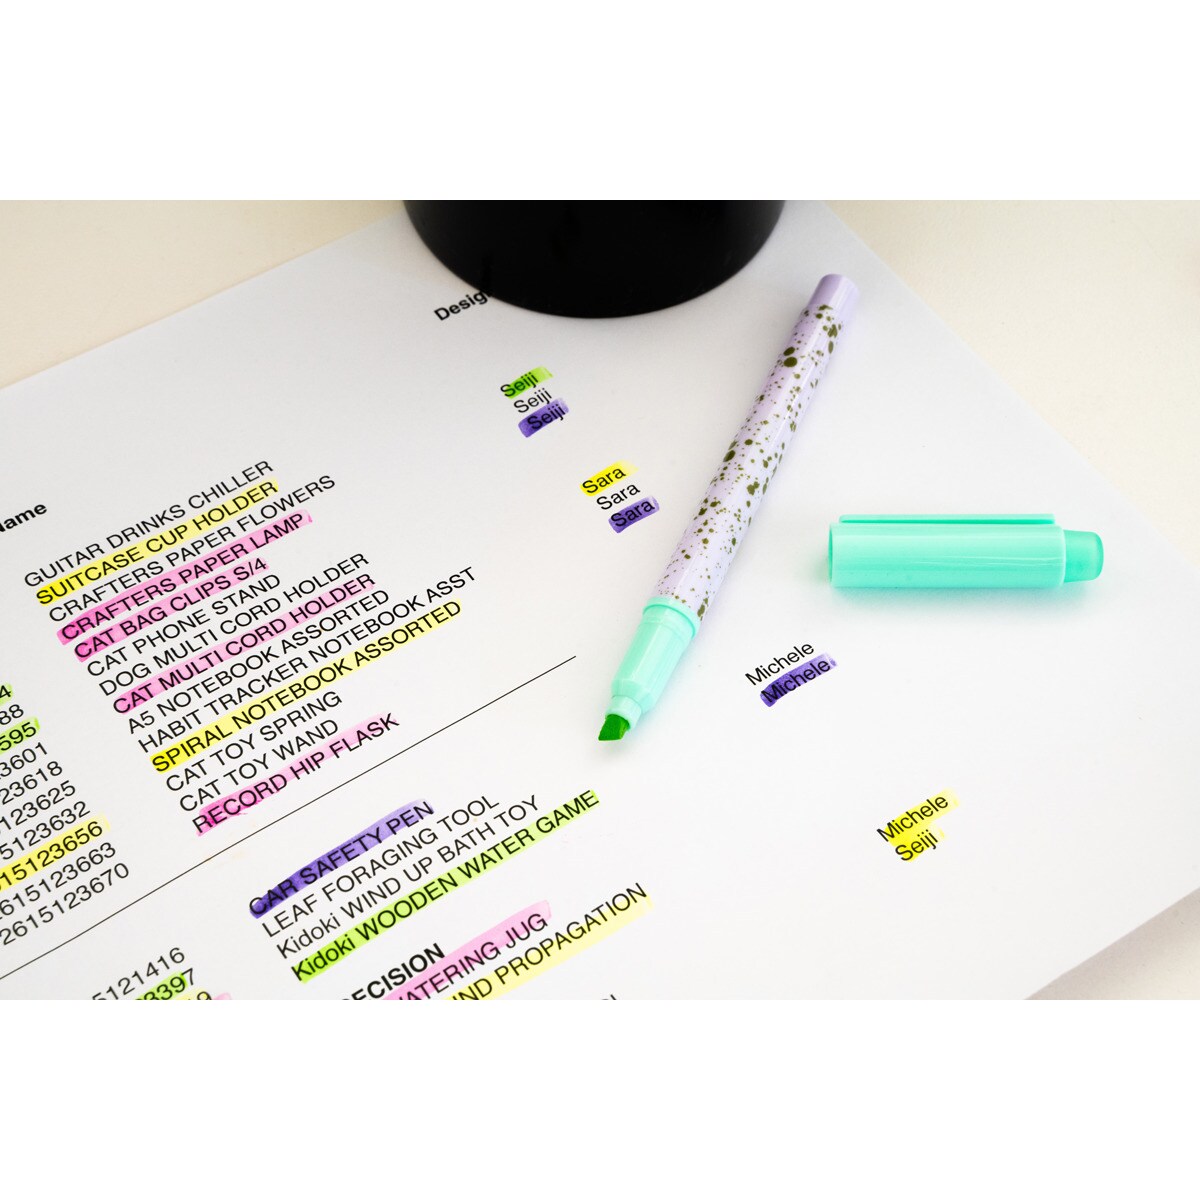 Design
Seiji
Seiji
Seiji
Sara
Sara
Sara
Michele
Michele
Michele
Seiji
Name
GUITAR DRINKS CHILLER
SUITCASE CUP HOLDER
CRAFTERS PAPER FLOWERS
CRAFTERS PAPER LAMP
CAT BAG CLIPS S/4
CAT PHONE STAND
DOG MULTI CORD HOLDER
CAT MULTI CORD HOLDER
A5 NOTEBOOK ASSORTED
HABIT TRACKER NOTEBOOK ASST
SPIRAL NOTEBOOK ASSORTED
CAT TOY SPRING
CAT TOY WAND
RECORD HIP FLASK
4
88
595
3601
23618
123625
5123632
15123656
615123663
2615123670
CAR SAFETY PEN
LEAF FORAGING TOOL
Kidoki WIND UP BATH TOY
Kidoki WOODEN WATER GAME
ECISION
WATERING JUG
ND PROPAGATION
5121416
3397